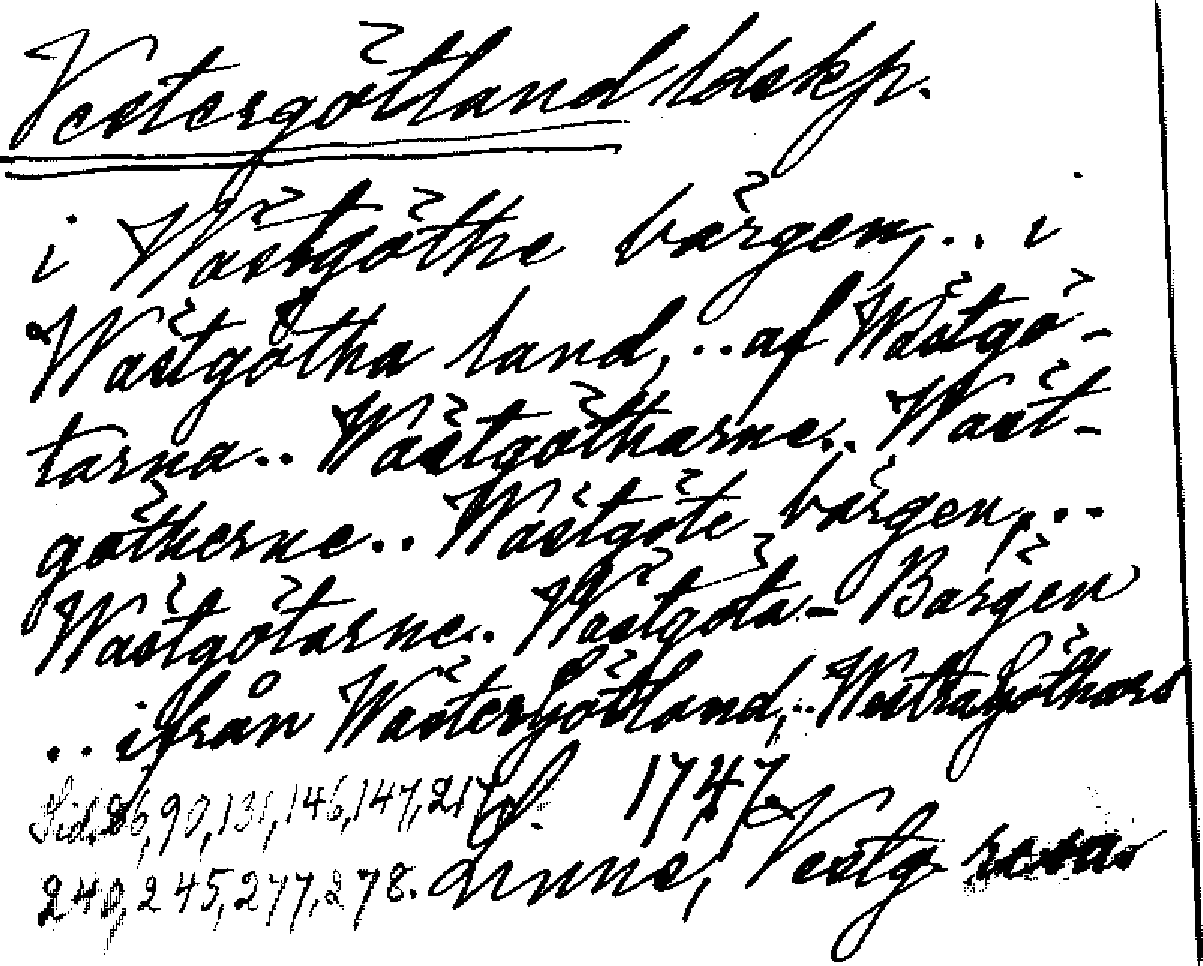 Vestergötland ldskp.
i Wästgöthe bärgen,.. i
Wästgötha land,.. af Wästgö-
tarna.. Wästgötharne.. Wäst-
götherne.. Wästgöte bärgen,..
Wästgötarne.. Wästgöta-Bärgen
.. ifrån Wästergötland,.. Westragöthars
Sid. 26, 90, 131, 146, 147, 217, 1747.
240, 245, 277, 278. Linne, Vestg. resa